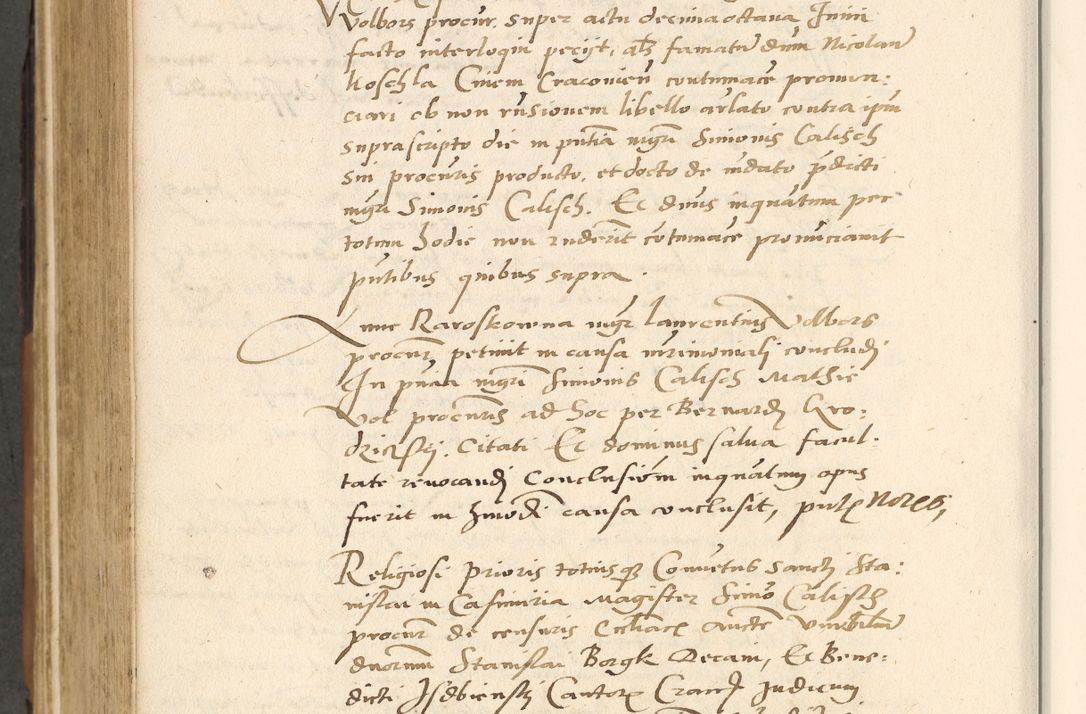 Volbors procur. super actu decima octava Junii
facto interloqui petijt, als famatum dnum Nicolaum
Koschla Civem Cracovien contumace pronun:
ciari ob non rnsionem libello arlato contra ipm
suprascripto die in pntia mgri Simonis Calisch
sui procuris producto, et docto de mdato pdicti
mgri Simonis Calisch. Et dnus inquatum per
totum hodie non rnderit cotumace pronuciavit
pntibus quibus supra.
Anne Karoskowna mgr laurentius Volbors
procur, petivit in causa mrimoniali concludi
In pntia mgri Simonis Calisch Mathie
Vol procuris ad hoc per Bernardi Gro:
dziczki. Citati Et dominus salva facul:
tate revocandi Conclusionem inquatum opus
fuerit in hmodi causa conclusit, pntz Notes,
Religiosi prioris totiusqz Conventus Sancti Sta:
nislai in Casimiria Magister Simo Calisch
procur de censuris Ecliacz aucte Vnrbilium
duorum Stanislai Borgk Decani, Et Bene:
dicti Isdbienski Cantoz Cracz Judicum